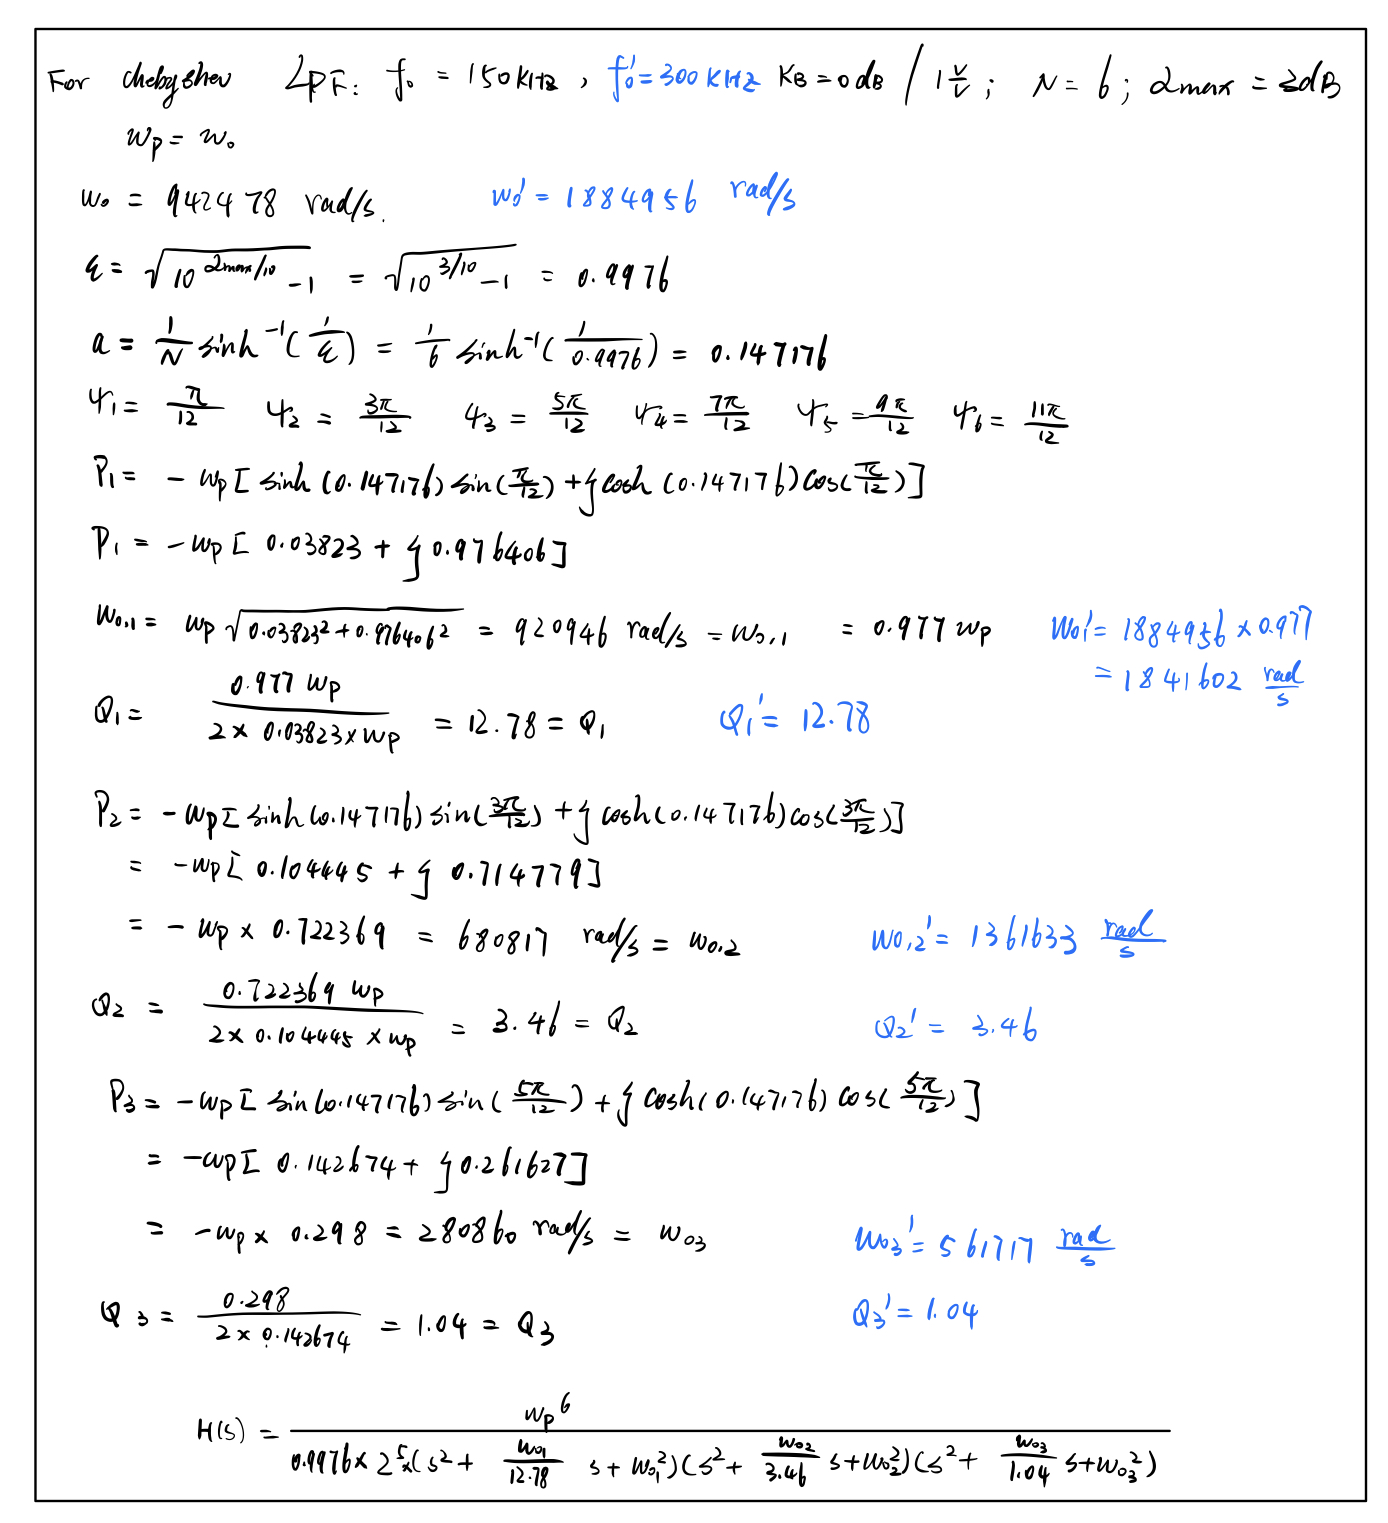 For chebyshev LPF: f₀ = 150KHz, f₀' = 300KHz KB = 0dB / 1 V/V; N = 6; αmax = 3dB
ωp = ω₀
ω₀ = 942478 rad/s. ω₀' = 1884956 rad/s
ε = √(10^(αmax/10) - 1) = √(10^(3/10) - 1) = 0.9976
a = 1/N sinh⁻¹(1/ε) = 1/6 sinh⁻¹(1/0.9976) = 0.147176
Ψ₁ = π/12 Ψ₂ = 3π/12 Ψ₃ = 5π/12 Ψ₄ = 7π/12 Ψ₅ = 9π/12 Ψ₆ = 11π/12
P₁ = - ωp[sinh(0.147176) sin(π/12) + j cosh(0.147176) cos(π/12)]
P₁ = - ωp[0.03823 + j 0.976406]
ω₀,₁ = ωp √(0.03823² + 0.976406²) = 920946 rad/s = ω₀,₁ = 0.977 ωp ω₀₁' = 1884956 × 0.977
= 1841602 rad/s
Q₁ = 0.977 ωp / (2 × 0.03823 × ωp) = 12.78 = Q₁ Q₁' = 12.78
P₂ = - ωp[sinh(0.147176) sin(3π/12) + j cosh(0.147176) cos(3π/12)]
= - ωp[0.104445 + j 0.714779]
= - ωp × 0.722369 = 680817 rad/s = ω₀,₂ ω₀,₂' = 1361633 rad/s
Q₂ = 0.722369 ωp / (2 × 0.104445 × ωp) = 3.46 = Q₂ Q₂' = 3.46
P₃ = - ωp[sin(0.147176) sin(5π/12) + j cosh(0.147176) cos(5π/12)]
= - ωp[0.142674 + j 0.261627]
= - ωp × 0.298 = 280860 rad/s = ω₀₃ ω₀₃' = 561717 rad/s
Q₃ = 0.298 / (2 × 0.142674) = 1.04 = Q₃ Q₃' = 1.04
H(s) = ωp⁶ / (0.9976 × 2⁵ × (s² + ω₀₁/12.78 s + ω₀₁²)(s² + ω₀₂/3.46 s + ω₀₂²)(s² + ω₀₃/1.04 s + ω₀₃²))